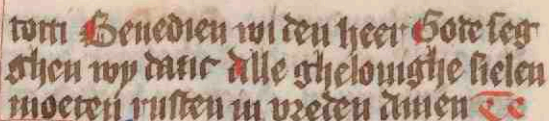 tom Benedien wi den heer Gode seg
ghen wy danc Alle ghelouighe sielen
moeten rusten in vreden Amen